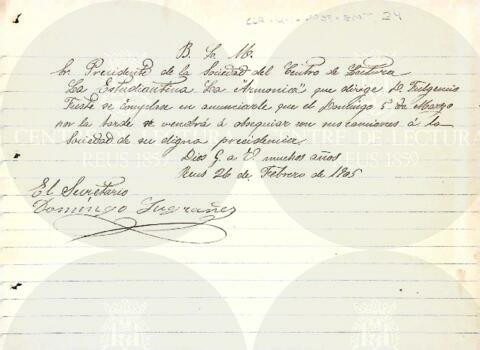 B. La M.
Sr. Presidente de la Sociedad del Centro de Lectura
La Estudiantina "La Armonica" que dirige D. Fulgencio
Triste se complace en anunciarle que el Domingo 5 de Marzo
por la tarde se vendrá á obsequiar con sus canciones á la
Sociedad de su digna presidencia
Dios G. a V. muchos años
Reus 26 de Febrero de 1905
El Secretario
Domingo Sugrañes
CENTRE DE LECTURA
REUS 1859
CENTRE DE LECTURA
REUS 1859